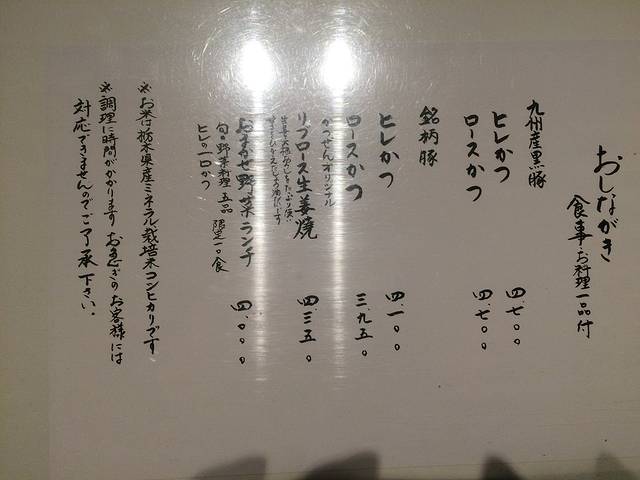 おしながき
食事・お料理一品付
九州産黒豚
ヒレかつ 四、七〇〇
ロースかつ 四、七〇〇
銘柄豚
ヒレかつ 四、一〇〇
ロースかつ 三、九五〇
かつせんオリジナル
リブロース生姜焼 四、三五〇
おまかせ野菜ランチ 四、〇〇〇
旬の野菜料理 五品 限定一〇食
ヒレの一口かつ
※お米は栃木県産ミネラル栽培米コシヒカリです
※調理に時間がかかります お急ぎのお客様には
対応できませんのでご了承下さい。